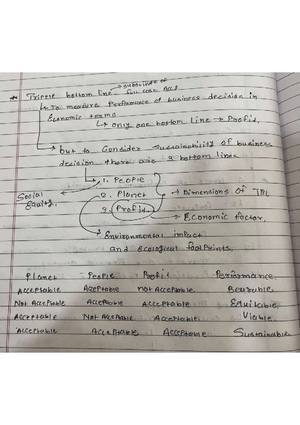 subsidiary of
** Tripple bottom line - full cost Acc
↳ To measure Performance of business decision in
Economic terms
↳ only one bottom line → Profit.
↳ but to Consider Sustainability of business
decision there are 3 bottom line
1. People
Social Equity.
2. Planet → Dimensions of TBL
3. Profit.
→ Economic factor.
→ Environmental impact
and ecological footprints.
Planet People Profit Performance
Acceptable Acceptable not Acceptable Bearable.
Not Acceptable Acceptable Acceptable Equitable.
Acceptable Not Acceptable Acceptable. Viable.
Acceptable Acceptable Acceptable. Sustainable